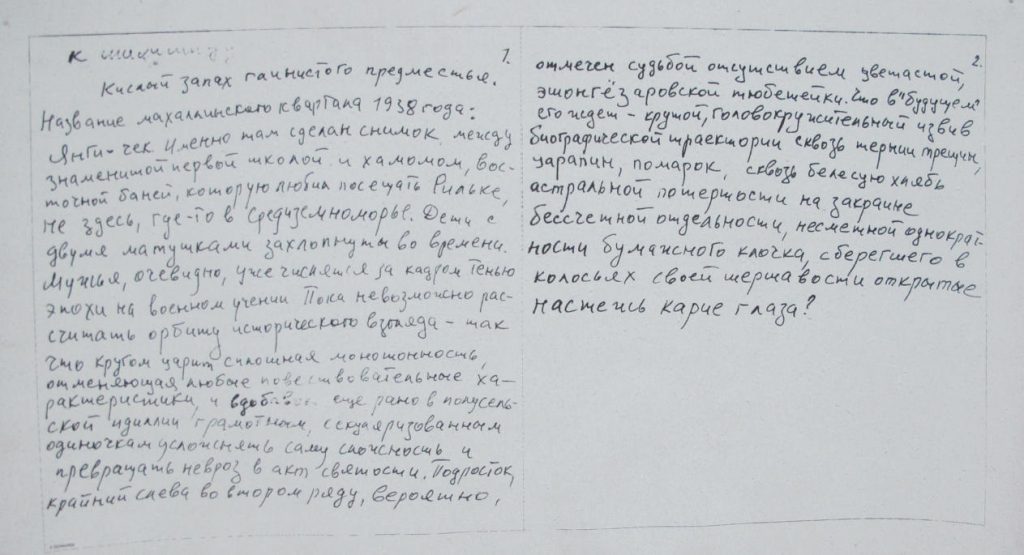 К
1.
Кислый запах глинистого предместья.
Название махаллинского квартала 1938 года:
Янги-чек. Именно там сделан снимок между
знаменитой первой школой и хамомом, вос-
точной баней, которую любил посещать Рильке,
не здесь, где-то в Средиземноморье. Дети с
двумя матушками захлопнуты во времени.
Мужья, очевидно, уже числятся за кадром тенью
эпохи на военном учении. Пока невозможно рас-
считать орбиту исторического взгляда – так
что кругом царит сплошная монотонность,
отменяющая любые повествовательные ха-
рактеристики, и вдобавок еще рано в полусель-
ской идиллии грамотным, секуляризованным
одиночкам усложнять саму сложность и
превращать невроз в акт святости. Подросток,
крайний слева во втором ряду, вероятно,
2.
отмечен судьбой отсутствием цветастой,
эшонгёзаровской тюбетейки. Что в "будущем"
его ждет – крутой, головокружительный извив
биографической траектории сквозь тернии трещин,
царапин, помарок, сквозь белесую хлябь
астральной потертости на закраине
бессчетной отдельности, несметной однократ-
ности бумажного клочка, сберегшего в
колосьях своей шершавости открытые
настежь карие глаза?